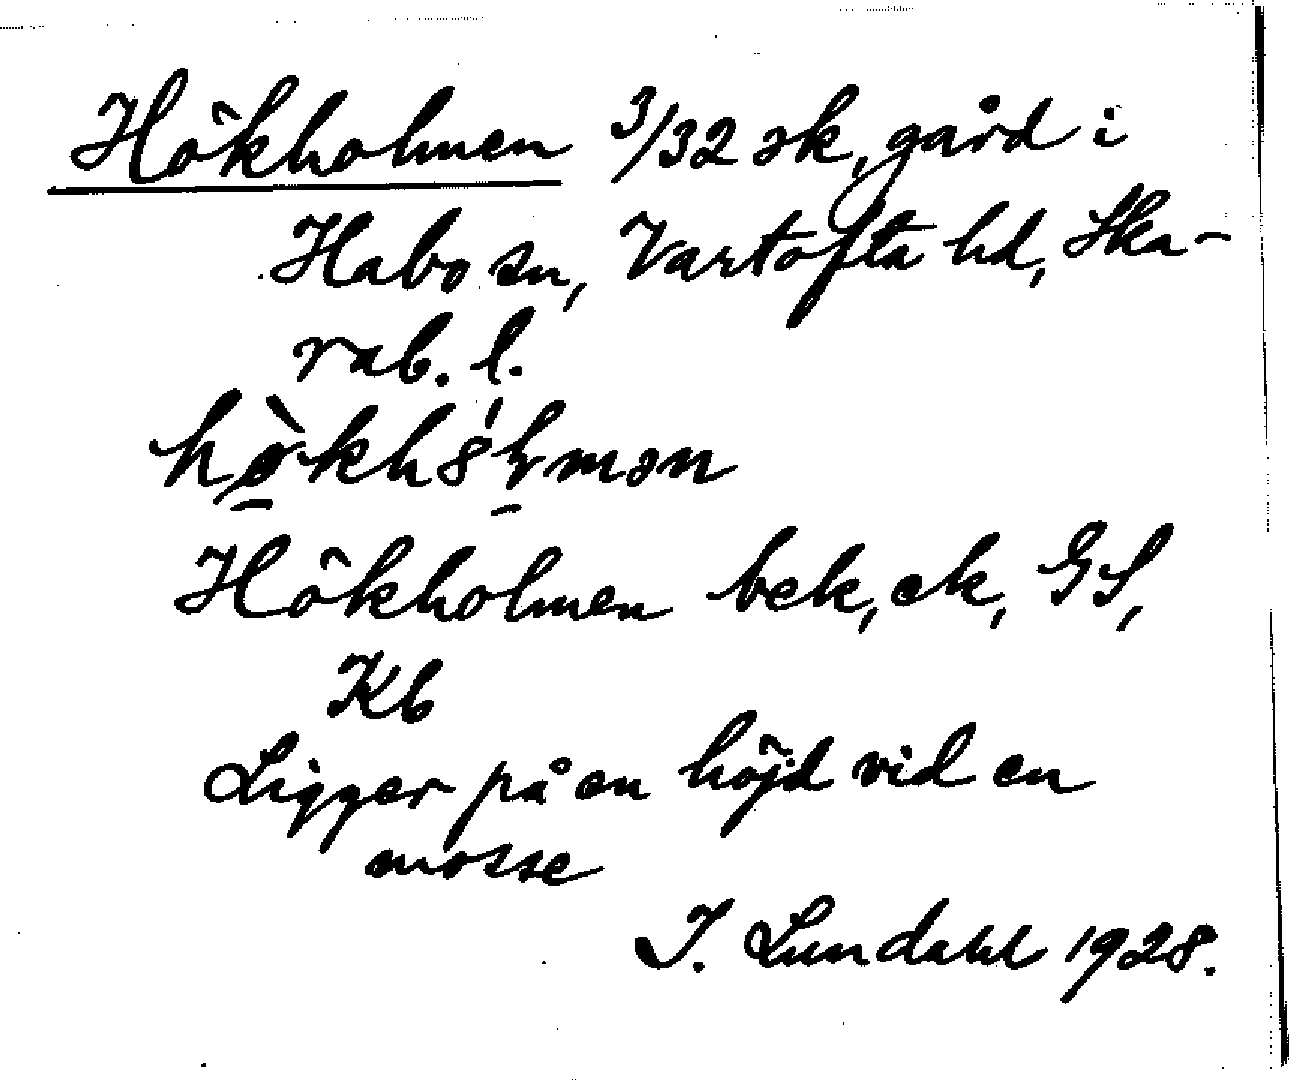 Hökholmen 3/32 sk, gård i
Habo sn, Vartofta hd, Ska-
rab. l.
Hökholmen bek, ek, GS,
Kb
Ligger på en höjd vid en
mosse
I. Lundahl 1928.